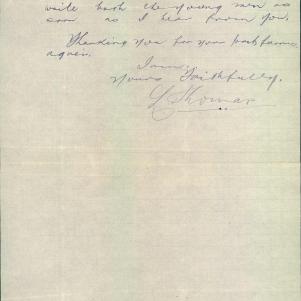 write back the young men as
soon as I hear from you.
Thanking you for your past favors
again.
I am,
Yours Faithfully,
L Thomas